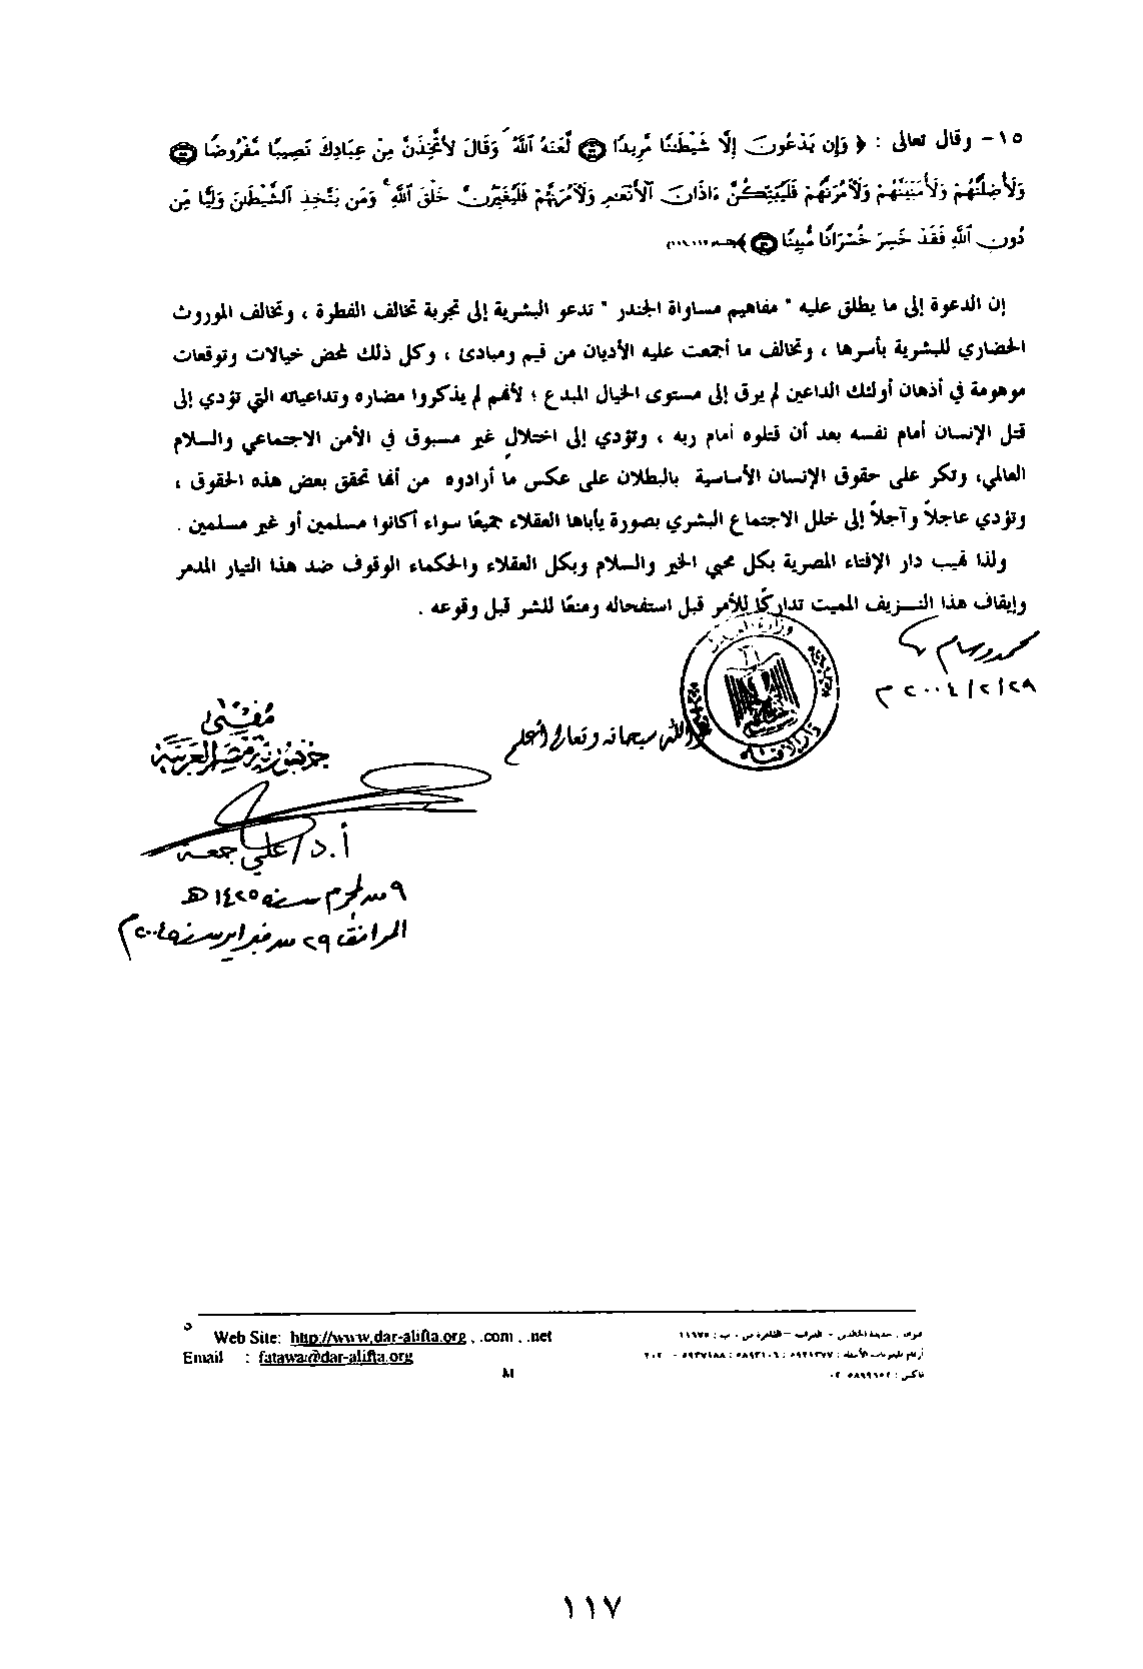 ١٥- وقال تعالى : ﴿ وَإِن يَدْعُونَ إِلَّا شَيْطَٰنًا مَّرِيدًا ۝ لَّعَنَهُ ٱللَّهُ ۘ وَقَالَ لَأَتَّخِذَنَّ مِنْ عِبَادِكَ نَصِيبًا مَّفْرُوضًا ۝
وَلَأُضِلَّنَّهُمْ وَلَأُمَنِّيَنَّهُمْ وَلَءَامُرَنَّهُمْ فَلَيُبَتِّكُنَّ ءَاذَانَ ٱلْأَنْعَٰمِ وَلَءَامُرَنَّهُمْ فَلَيُغَيِّرُنَّ خَلْقَ ٱللَّهِ ۚ وَمَن يَتَّخِذِ ٱلشَّيْطَٰنَ وَلِيًّا مِّن
دُونِ ٱللَّهِ فَقَدْ خَسِرَ خُسْرَانًا مُّبِينًا ۝ ﴾
إن الدعوة إلى ما يطلق عليه " مفاهيم مساواة الجندر " تدعو البشرية إلى تجربة تخالف الفطرة ، وتخالف الموروث
الحضاري للبشرية بأسرها ، وتخالف ما أجمعت عليه الأديان من قيم ومبادئ ، وكل ذلك لمحض خيالات وتوقعات
موهومة في أذهان أولئك الداعين لم يرق إلى مستوى الخيال المبدع ؛ لأنهم لم يذكروا مضاره وتداعياته التي تؤدي إلى
قتل الإنسان أمام نفسه بعد أن قتلوه أمام ربه ، وتؤدي إلى اختلالٍ غير مسبوق في الأمن الاجتماعي والسلام
العالمي، وتكر على حقوق الإنسان الأساسية بالبطلان على عكس ما أرادوه من أنها تحقق بعض هذه الحقوق ،
وتؤدي عاجلاً وآجلاً إلى خلل الاجتماع البشري بصورة يأباها العقلاء جميعًا سواء أكانوا مسلمين أو غير مسلمين .
ولذا تهيب دار الإفتاء المصرية بكل محبي الخير والسلام وبكل العقلاء والحكماء الوقوف ضد هذا التيار المدمر
وإيقاف هذا النـزيف المميت تداركًا للأمر قبل استفحاله ومنعًا للشر قبل وقوعه .
محمد وسام
٢٩/٢/٢٠٠٤ م
والله سبحانه وتعالى أعلم
دار الإفتاء
مفتي
جمهورية مصر العربية
أ.د/علي جمعة
٩ من المحرم سنة ١٤٢٥ هـ
الموافق ٢٩ من فبراير سنة ٢٠٠٤ م
٥
Web Site: http://www.dar-alifta.org , .com , .net
Email : fatawa@dar-alifta.org
M
١١٧